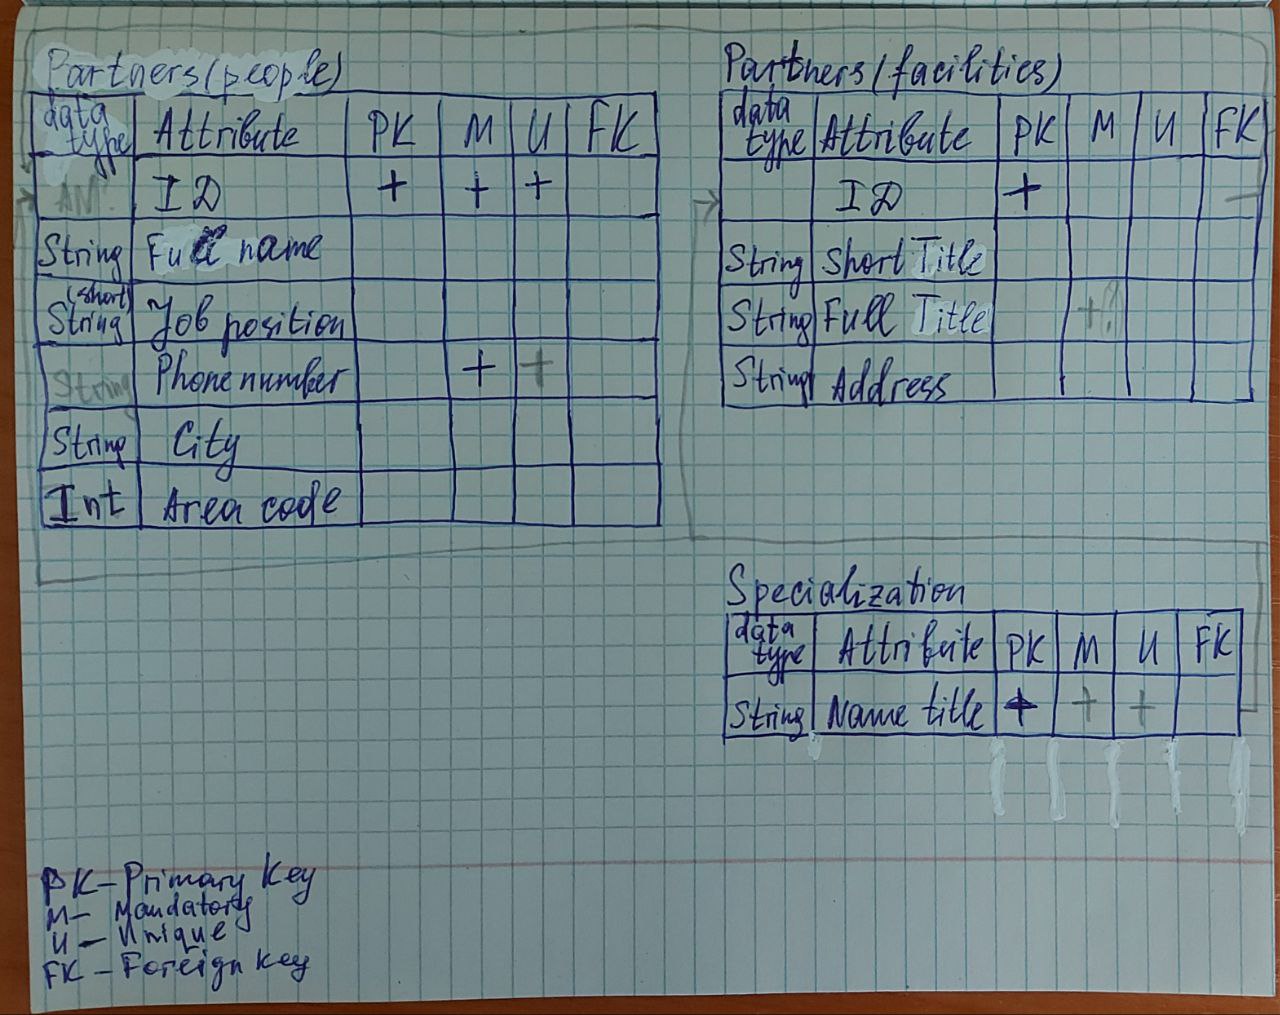 Partners (people)
data type Attribute PK M U FK
AN? ID + + +
String Full name
(short) String Job position
String Phone number + +
String City
Int Area code
Partners (facilities)
data type Attribute PK M U FK
ID +
String Short Title
String Full Title +?
String Address
Specialization
data type Attribute PK M U FK
String Name title + + +
PK – Primary Key
M – Mandatory
U – Unique
FK – Foreign key